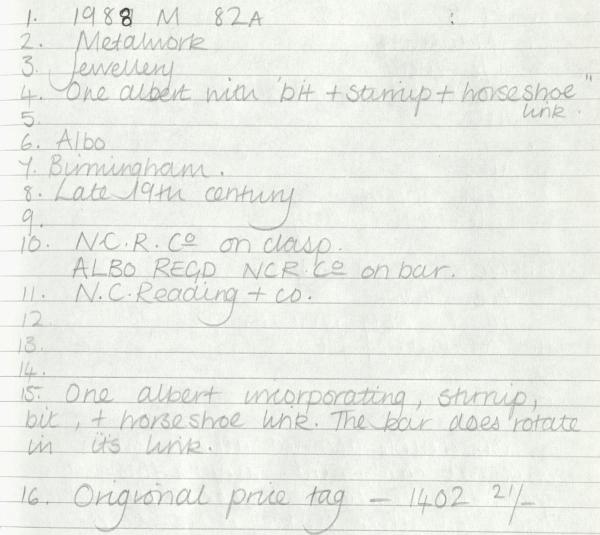 1. 1988 M 82A
2. Metalwork
3. Jewellery
4. One albert with 'bit + stirrup + horseshoe"
link.
5.
6. Albo
7. Birmingham.
8. Late 19th century
9.
10. N.C.R. Co on clasp.
ALBO REGD NCR. Co on bar.
11. N.C. Reading + co.
12
13.
14.
15. One albert incorporating, stirrup,
bit, + horseshoe link. The bar does rotate
in its link.
16. Origional price tag - 1402 21/-